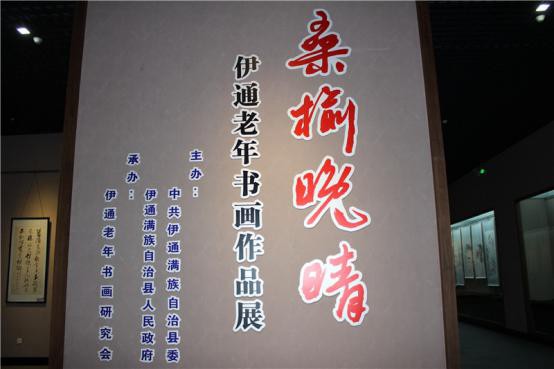 桑榆晚晴
伊通老年书画作品展
主办：
中共伊通满族自治县委
伊通满族自治县人民政府
承办：
伊通老年书画研究会